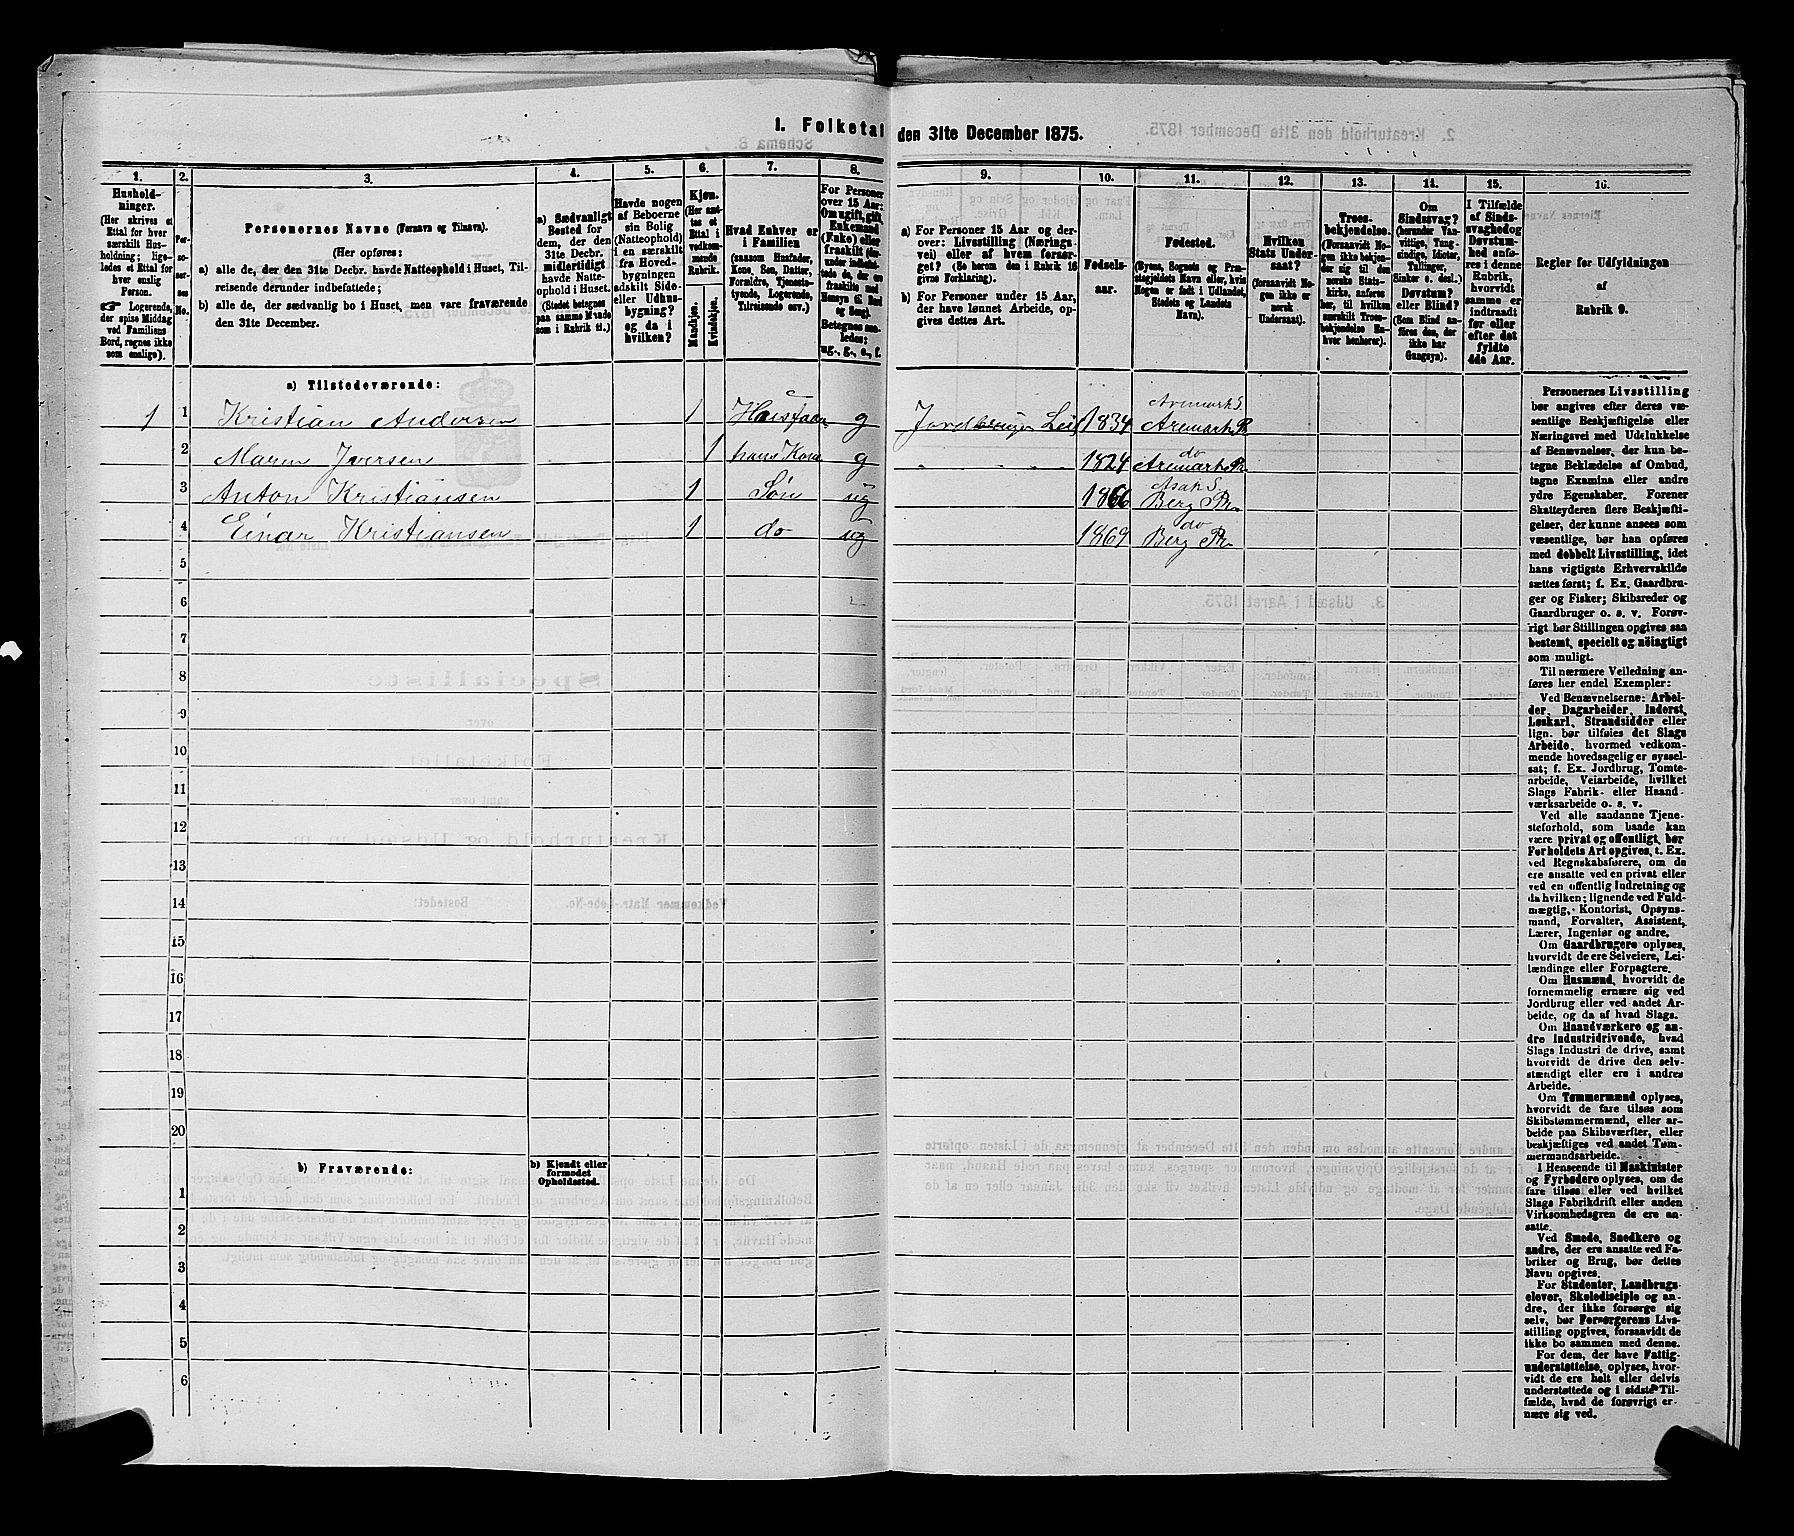 I. Folketal den 31te December 1875.
1. 2. 3. 4. 5. 6. 7. 8. 9. 10. 11. 12. 13. 14. 15. 16.
Hushold-
ninger.
(Her skrives et
Ettal for hver
særskilt Hus-
holdning; lige-
ledes et Ettal for
hver enslig
Person.
☞ Logerende,
der spise Middag
ved Familiens
Bord, regnes ikke
som enslige).
Per-
so-
ner-
nes
No.
Personernes Navne (Fornavn og Tilnavn).
(Her opføres:
a) alle de, der den 31te Decbr. havde Natteophold i Huset, Til-
reisende derunder indbefattede;
b) alle de, der sædvanlig bo i Huset, men vare fraværende
den 31te December.
a) Sædvanligt
Bosted for
dem, der den
31te Decbr.
midlertidigt
havde Natte-
ophold i Huset.
(Stedet betegnes
paa samme Maade
som i Rubrik 11.)
Havde nogen
af Beboerne
sin Bolig
(Natteophold)
i en særskilt
fra Hoved-
bygningen
adskilt Side-
eller Udhus-
bygning?
og da i
hvilken?
Kjøn.
(Her sæt-
tes et
Ettal i
vedkom-
mende
Rubrik.
Mandkjøn.
Kvindekjøn.
Hvad Enhver er
i Familien
(saasom Husfader,
Kone, Søn, Datter,
Forældre, Tjeneste-
tyende, Logerende,
Tilreisende osv.)
For Personer
over 15 Aar:
Om ugift, gift,
Enkemand
(Enke) eller
fraskilt (der-
under indbefat-
tede de, der ere
fraskilte med
Hensyn til Bord
og Seng).
Betegnes saa-
ledes:
ug., g., e., f.
a) For Personer 15 Aar og der-
over: Livsstilling (Nærings-
vei) eller af hvem forsør-
get? (Se herom den i Rubrik 16
givne Forklaring).
b) For Personer under 15 Aar,
der have lønnet Arbeide, op-
gives dettes Art.
Fødsels-
aar.
Fødested.
(Byens, Sognets og Præ-
stegjeldets Navn eller, hvis
Nogen er født i Udlandet,
Stedets og Landets
Navn).
Hvilken
Stats Under-
saat?
(forsaavidt No-
gen ikke er
norsk
Undersaat).
Troes-
bekjendelse.
(Forsaavidt No-
gen ikke bekjen-
der sig til den
norske Stats-
kirke, anføres
her, til hvilken
særskilt Troes-
bekjendelse En-
hver henhører).
Om
Sindssvag?
(herunder Van-
vittige, Tung-
sindige, Idioter,
Tullinger,
Sinker o. desl.).
Døvstum?
eller Blind?
(Som Blind an-
føres den, der
ikke har
Gangsyn).
I Tilfælde
af Sinds-
svaghed og
Døvstum-
hed anfø-
res i denne
Rubrik,
hvorvidt
samme er
indtraadt
før eller
efter det
fyldte
4de Aar.
Regler for Udfyldningen
af
Rubrik 9.
a) Tilstedeværende:
1 1 Kristian Andersen 1 Husfader g Jordbruger Lei 1834 Aremark S. Aremark Pr
2 Maren Iversen 1 hans Kone g 1824 do Aremark Pr
3 Anton Kristiansen 1 Søn ug 1866 Asak S Berg Pr.
4 Einar Kristiansen 1 do ug 1869 do Berg Pr.
5
6
7
8
9
10
11
12
13
14
15
16
17
18
19
20
b) Fraværende:
b) Kjendt eller
formodet
Opholdssted.
1
2
3
4
5
6
Personernes Livsstilling
bør angives efter deres væ-
sentlige Beskjæftigelse eller
Næringsvei med Udelukkelse
af Benævnelser, der kun be-
tegne Beklædelse af Ombud,
tagne Examina eller andre
ydre Egenskaber. Forener
Skatteyderen flere Beskjæfti-
gelser, der kunne ansees som
væsentlige, bør han opføres
med dobbelt Livsstilling, idet
hans vigtigste Erhvervskilde
sættes først; f. Ex. Gaardbru-
ger og Fisker; Skibsreder og
Gaardbruger o. s. v. Forøv-
rigt bør Stillingen opgives saa
bestemt, specielt og nöiagtigt
som muligt.
Til nærmere Veiledning an-
føres her endel Exempler:
Ved Benævnelserne: Arbei-
der, Dagarbeider, Inderst,
Løskarl, Strandsidder eller
lign. bør tilføies det Slags
Arbeide, hvormed vedkom-
mende hovedsagelig er syssel-
sat; f. Ex. Jordbrug, Tomte-
arbeide, Veiarbeide, hvilket
Slags Fabrik- eller Haand-
værksarbeide o. s. v.
Ved alle saadanne Tjene-
steforhold, som baade kan
være privat og offentligt, bør
Forholdets Art opgives, t. Ex.
ved Regnskabsførere, om de
ere ansatte ved en privat eller
ved en offentlig Indretning og
da hvilken; lignende ved Fuld-
mægtig, Kontorist, Opsyns-
mand, Forvalter, Assistent,
Lærer, Ingeniør og andre.
Om Gaardbrugere oplyses,
hvorvidt de ere Selveiere, Lei-
lændinge eller Forpagtere.
Om Husmænd, hvorvidt de
fornemmelig ernære sig ved
Jordbrug eller ved andet Ar-
beide, og da af hvad Slags.
Om Haandværkere og an-
dre Industridrivende, hvad
Slags Industri de drive, samt
hvorvidt de drive den selv-
stændigt eller ere i andres
Arbeide.
Om Tømmermænd oplyses,
hvorvidt de fare tilsøs som
Skibstømmermænd, eller ar-
beide paa Skibsværfter, eller
beskjæftiges ved andet Tøm-
mermandsarbeide.
I Henseende til Maskinister
og Fyrbødere oplyses, om de
fare tilsøs eller ved hvilket
Slags Fabrikdrift eller anden
Virksomhedsgren de ere an-
satte.
Ved Smede, Snedkere og
andre, der ere ansatte ved Fa-
briker og Brug, bør dettes
Navn opgives.
For Studenter, Landbrugs-
elever, Skoledisciple og an-
dre, der ikke forsørge sig
selv, bør Forsørgerens Livs-
stilling opgives, forsaavidt de
ikke bo sammen med denne.
For dem, der have Fattig-
understøttelse, oplyses, hvor-
vidt de ere helt eller delvis
understøttede og i sidste Til-
fælde, hvad de forøvrigt er-
nære sig ved.